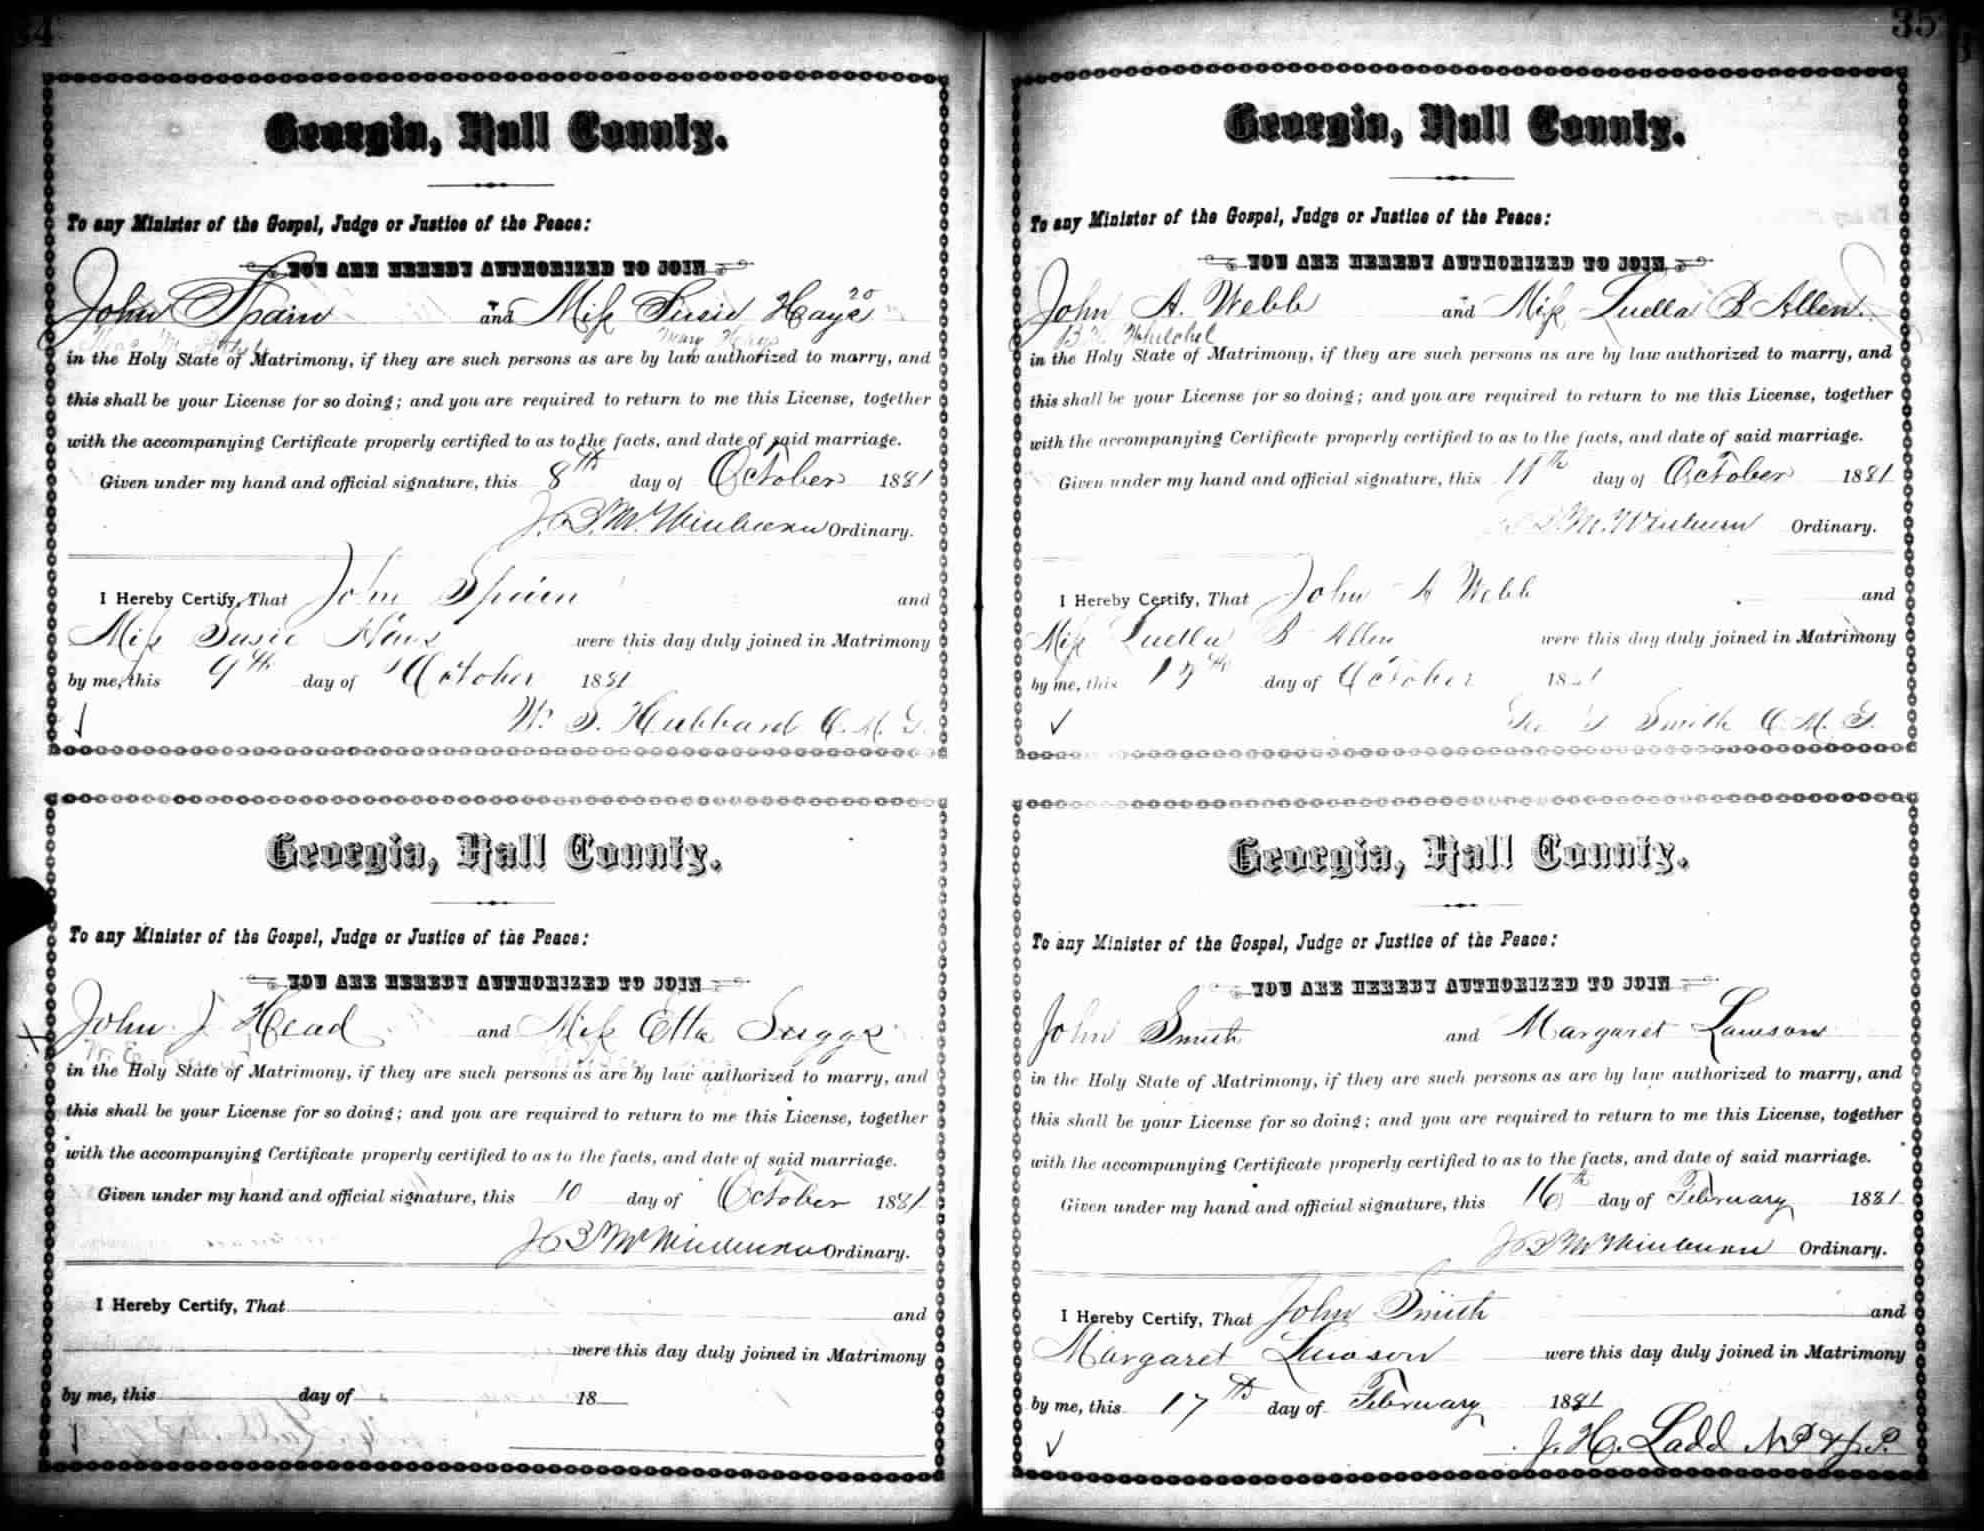 34
Georgia, Hall County.
To any Minister of the Gospel, Judge or Justice of the Peace:
YOU ARE HEREBY AUTHORIZED TO JOIN
John Spain and Miss Susie Hays 20
Mary Hays
in the Holy State of Matrimony, if they are such persons as are by law authorized to marry, and
this shall be your License for so doing; and you are required to return to me this License, together
with the accompanying Certificate properly certified to as to the facts, and date of said marriage.
Given under my hand and official signature, this 8th day of October 1881
J. B. M. Winburn Ordinary.
I Hereby Certify, That John Spain and
Miss Susie Hays were this day duly joined in Matrimony
by me, this 9th day of October 1881
W. S. Hubbard O. M. G.
Georgia, Hall County.
To any Minister of the Gospel, Judge or Justice of the Peace:
YOU ARE HEREBY AUTHORIZED TO JOIN
John J. Head and Miss Etta Suggs
in the Holy State of Matrimony, if they are such persons as are by law authorized to marry, and
this shall be your License for so doing; and you are required to return to me this License, together
with the accompanying Certificate properly certified to as to the facts, and date of said marriage.
Given under my hand and official signature, this 10 day of October 1881
J B M Winburn Ordinary.
I Hereby Certify, That and
were this day duly joined in Matrimony
by me, this day of 18
35
Georgia, Hall County.
To any Minister of the Gospel, Judge or Justice of the Peace:
YOU ARE HEREBY AUTHORIZED TO JOIN
John A. Webb and Miss Luella B Allen.
Whelchel
in the Holy State of Matrimony, if they are such persons as are by law authorized to marry, and
this shall be your License for so doing; and you are required to return to me this License, together
with the accompanying Certificate properly certified to as to the facts, and date of said marriage.
Given under my hand and official signature, this 11th day of October 1881
J B M. Winburn Ordinary.
I Hereby Certify, That John A Webb and
Miss Luella B Allen were this day duly joined in Matrimony
by me, this day of October 1881
Geo G Smith O. M. G.
Georgia, Hall County.
To any Minister of the Gospel, Judge or Justice of the Peace:
YOU ARE HEREBY AUTHORIZED TO JOIN
John Smith and Margaret Lawson
in the Holy State of Matrimony, if they are such persons as are by law authorized to marry, and
this shall be your License for so doing; and you are required to return to me this License, together
with the accompanying Certificate properly certified to as to the facts, and date of said marriage.
Given under my hand and official signature, this 16th day of February 1881
J B M Winburn Ordinary.
I Hereby Certify, That John Smith and
Margaret Lawson were this day duly joined in Matrimony
by me, this 17th day of February 1881
J. H. Ladd NP & J. P.